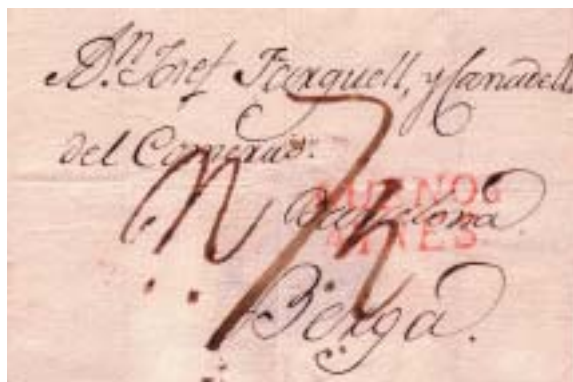 Dn. Josef Farguell, y Canadell
del Comercio.
BUENOS
Barcelona.
AIRES
Berga.